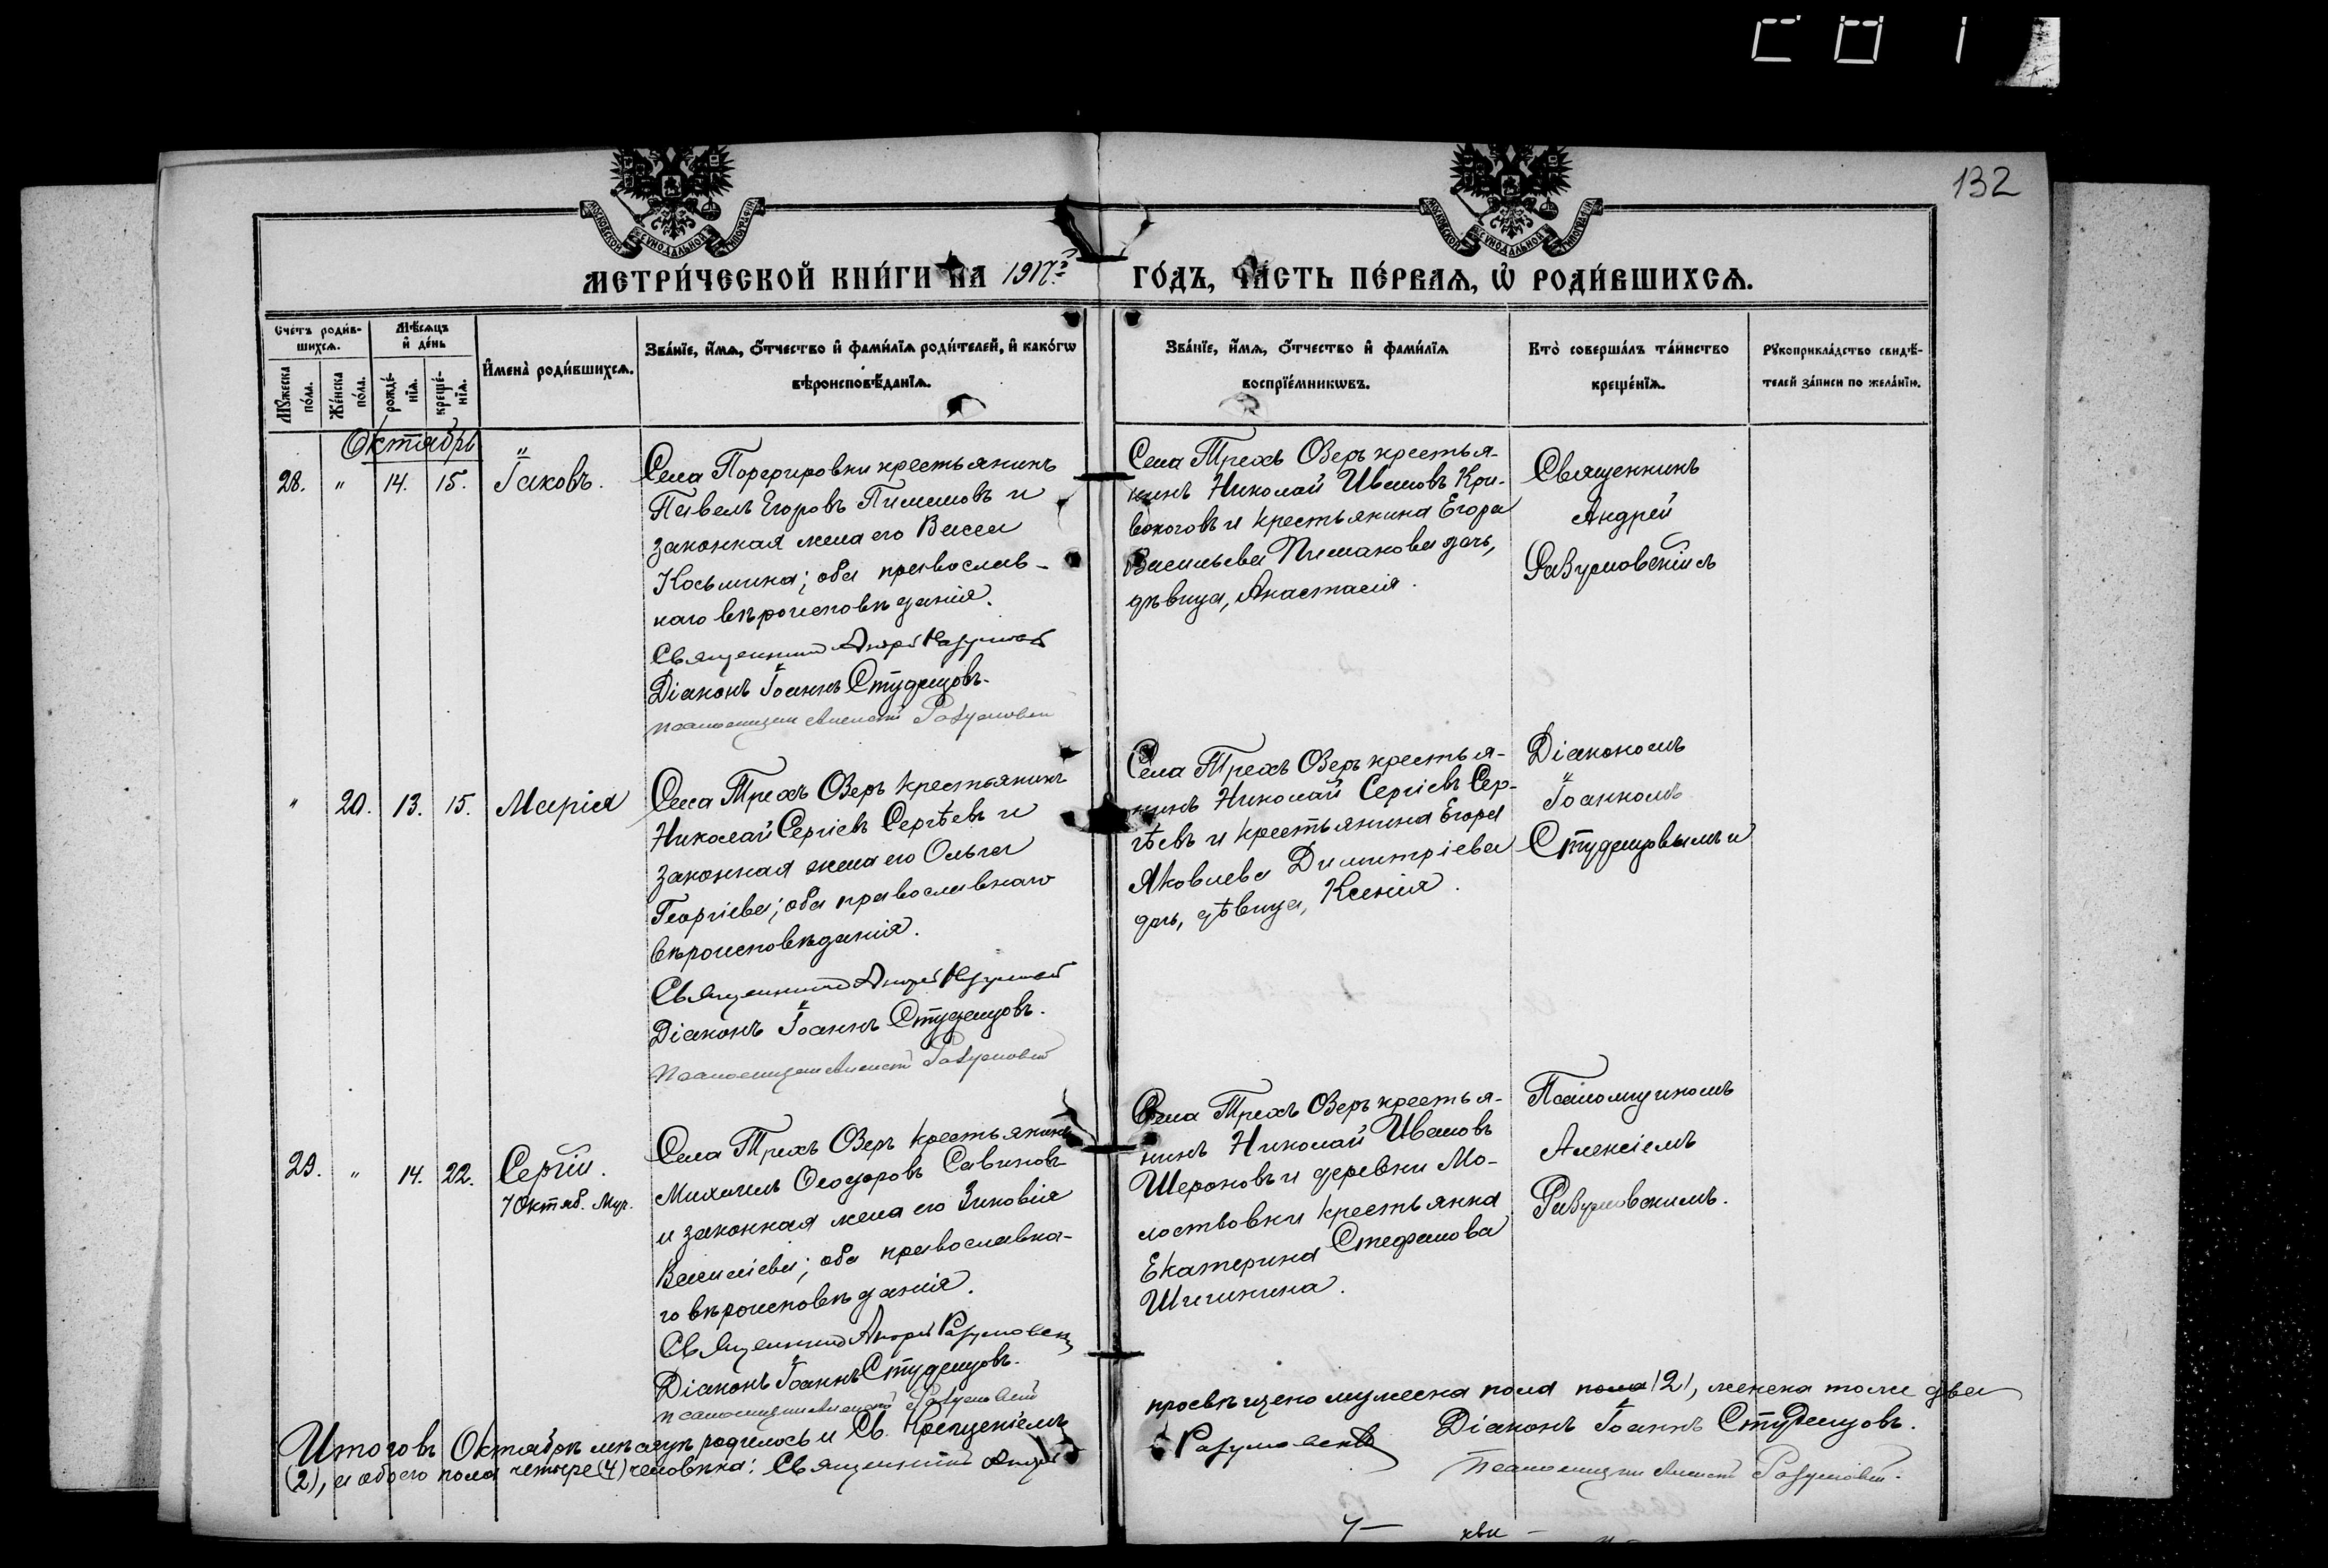 132
МОСКОВСКОЙ СУНОДАЛЬНОЙ ТИПОГРАФІИ
МОСКОВСКОЙ СУНОДАЛЬНОЙ ТИПОГРАФІИ
МЕТРИ́ЧЕСКОЙ КНИ́ГИ НА 1917 г. ГО́ДЪ, ЧА́СТЬ ПЕ́РВАѦ, Ѡ҆ РОДИ́ВШИХСѦ.
Сче́тъ роди́в-
шихсѧ.
Мѣ́сѧцъ
и҆ де́нь
Мꙋ́жеска
по́ла.
Же́нска
по́ла.
рожде́-
нїѧ.
креще́-
нїѧ.
И҆мена̀ роди́вшихсѧ.
Зва́нїе, и҆́мѧ, ѻ҆́тчество и҆ фами́лїѧ роди́телей, и҆ како́гѡ
вѣроисповѣ́данїѧ.
Зва́нїе, и҆́мѧ, ѻ҆́тчество и҆ фами́лїѧ
воспрїе́мникѡвъ.
Кто̀ соверша́лъ та́инство
креще́нїѧ.
Рꙋкоприкла́дство свидѣ́-
телей за́писи по жела́нїю.
Октябрь
28. " 14. 15. Іаковъ.
Села Порфировки крестьянинъ
Павелъ Егоровъ Пимановъ и
законная жена его Васса
Косьмина; оба православ-
наго вѣроисповѣданія.
Священникъ Андрей Разумовскій
Діаконъ Іоаннъ Студенцовъ.
Псаломщикъ Алексій Разумовскій
Села Трехъ Озеръ крестья-
нинъ Николай Ивановъ Кри-
воноговъ и крестьянина Егора
Васильева Пиманова дочь,
дѣвица, Анастасія.
Священникъ
Андрей
Разумовскій
" 20. 13. 15. Марія
Села Трехъ Озеръ крестьянинъ
Николай Сергіевъ Сергѣевъ и
законная жена его Ольга
Георгіева; оба православнаго
вѣроисповѣданія.
Священникъ Андрей Разумовскій
Діаконъ Іоаннъ Студенцовъ.
Псаломщикъ Алексій Разумовскій
Села Трехъ Озеръ крестья-
нинъ Николай Сергіевъ Сер-
гѣевъ и крестьянина Егора
Яковлева Димитріева
дочь, дѣвица, Ксенія.
Діакономъ
Іоанномъ
Студенцовымъ и
29. " 14. 22. Сергій.
7 Октяб. Муч.
Села Трехъ Озеръ крестьянинъ
Михаилъ Ѳеодоровъ Савиновъ
и законная жена его Зиновія
Василіева; оба православна-
го вѣроисповѣданія.
Священникъ Андрей Разумовскій
Діаконъ Іоаннъ Студенцовъ.
Псаломщикъ Алексій Разумовскій
Села Трехъ Озеръ крестья-
нинъ Николай Ивановъ
Шероновъ и деревни Мо-
лостовки крестьянка
Екатерина Стефанова
Шигинина.
Псаломщикомъ
Алексіемъ
Разумовскимъ.
Итого въ Октябрѣ мѣсяцѣ родилось и Св. Крещеніемъ просвѣщено мужеска пола пола (2), женска тоже два
(2), а обоего пола четыре (4) человѣка: Священникъ Андрей Разумовскій Діаконъ Іоаннъ Студенцовъ.
Псаломщикъ Алексій Разумовскій.